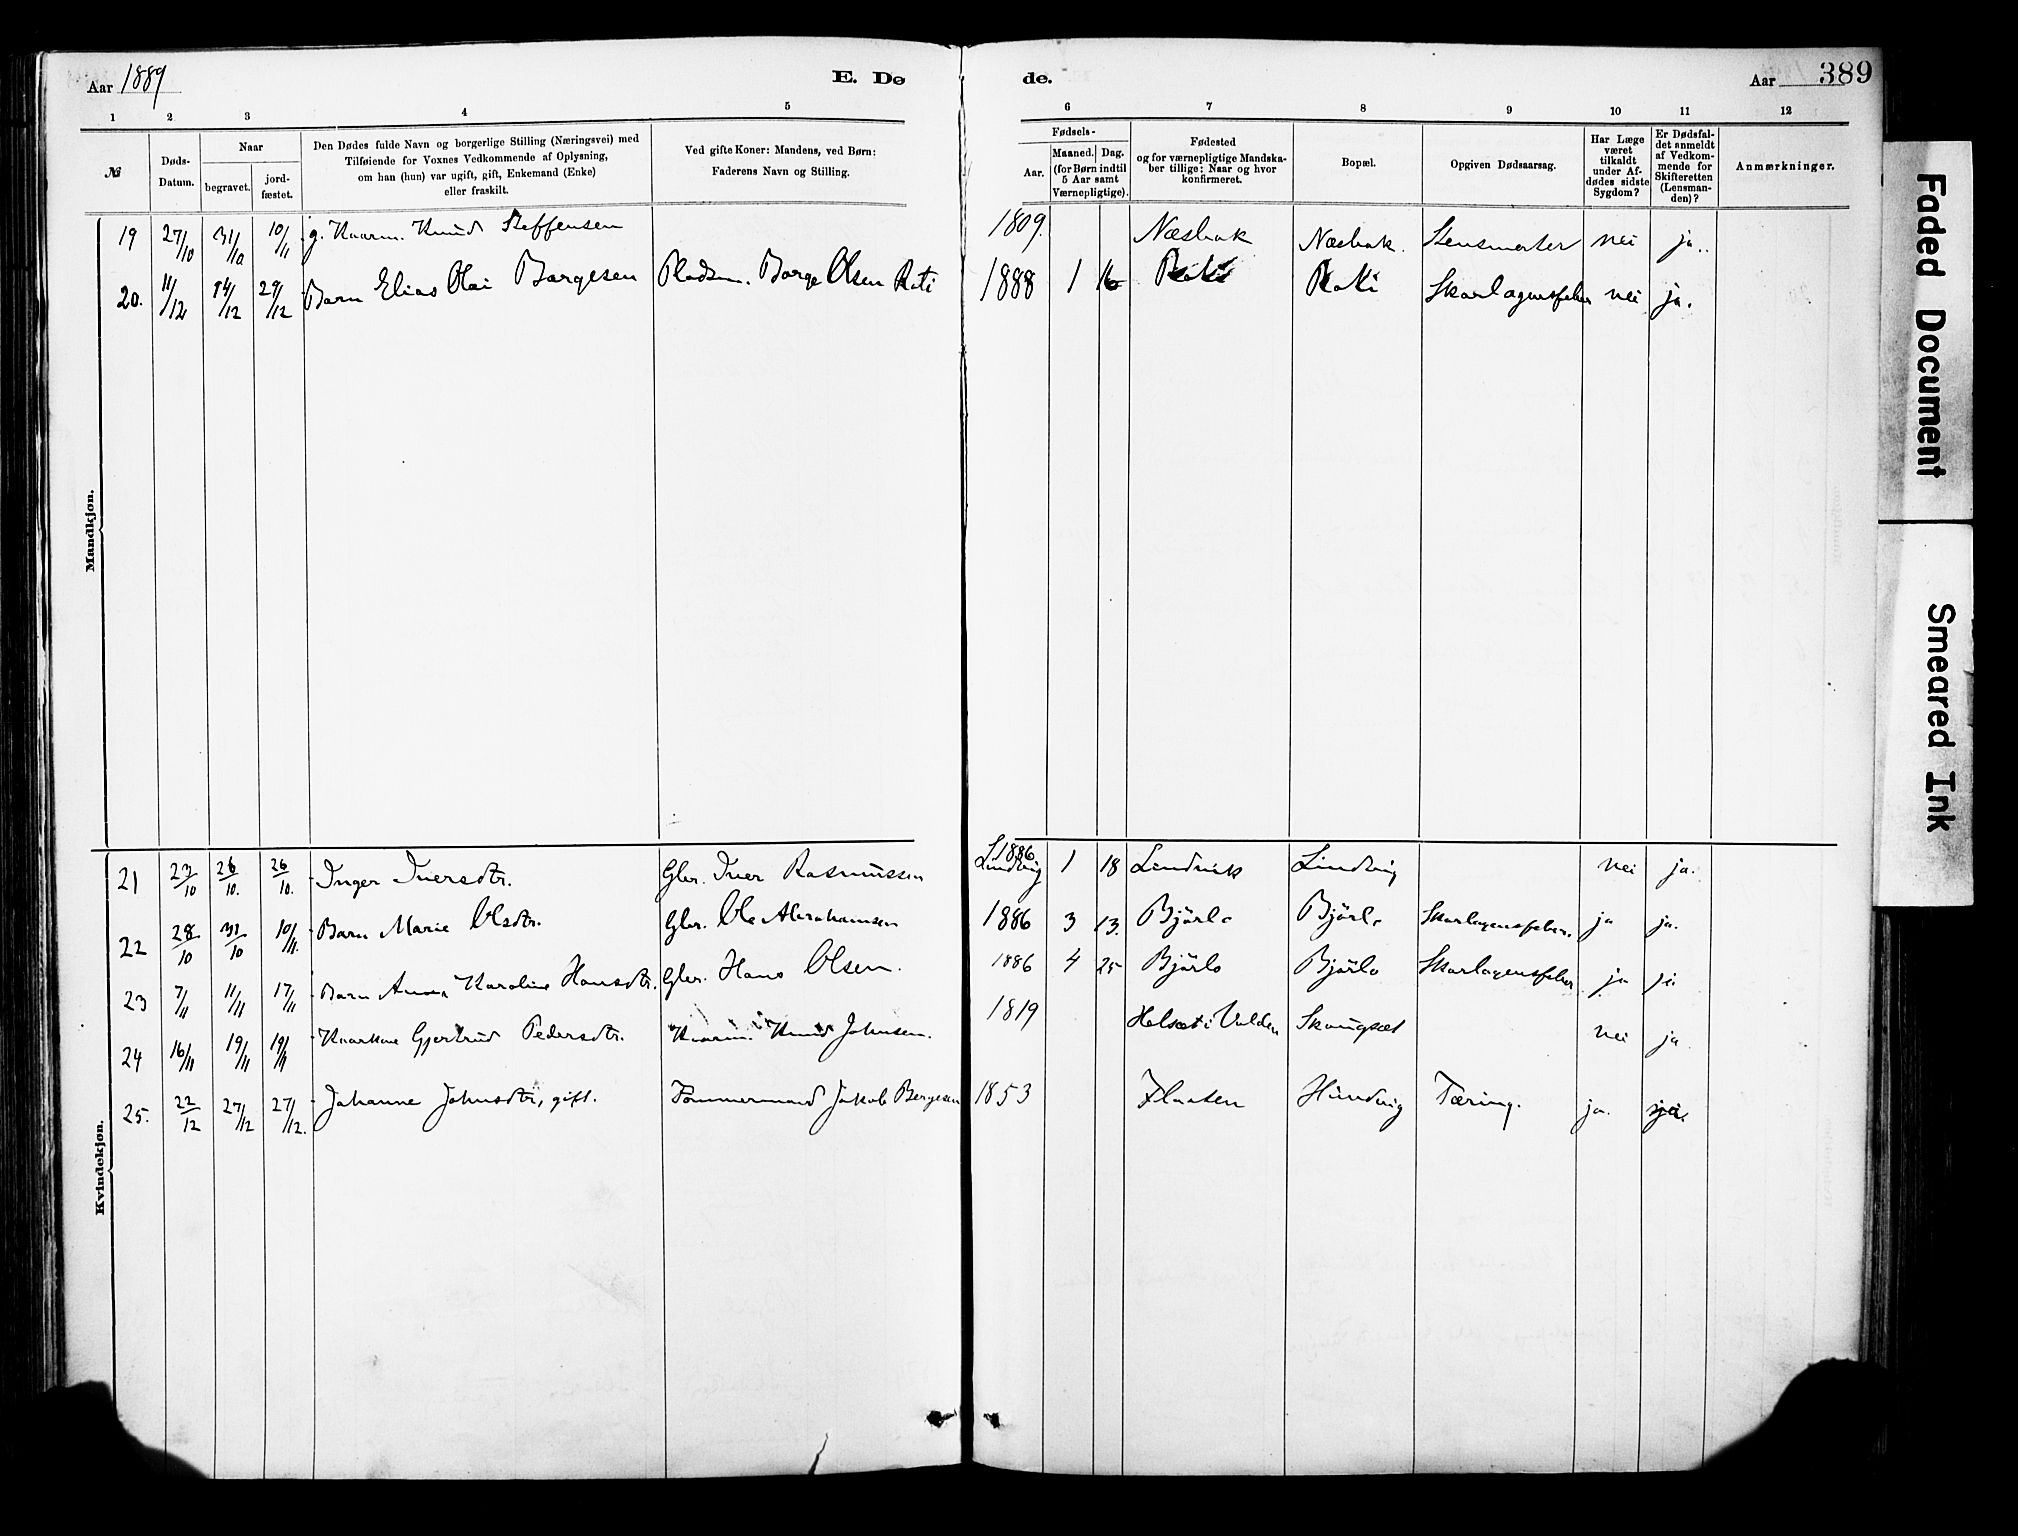 Aar 1889 E. Dø
de. Aar 389
1 2 3 4 5 6 7 8 9 10 11 12
№
Døds-
Datum.
Naar
begravet.
jord-
fæstet.
Den Dødes fulde Navn og borgerlige Stilling (Næringsvei) med
Tilføiende for Voxnes Vedkommende af Oplysning,
om han (hun) var ugift, gift, Enkemand (Enke)
eller fraskilt.
Ved gifte Koner: Mandens, ved Børn:
Faderens Navn og Stilling.
Fødsels-
Aar.
Maaned. Dag.
(for Børn indtil
5 Aar samt
Værnepligtige).
Fødested
og for værnepligtige Mandska-
ber tillige: Naar og hvor
konfirmeret.
Bopæl.
Opgiven Dødsaarsag.
Har Læge
været
tilkaldt
under Af-
dødes sidste
Sygdom?
Er Dødsfal-
det anmeldt
af Vedkom-
mende for
Skifteretten
(Lensman-
den)?
Anmærkninger.
Mandkjøn.
19 27/10 31/10 10/11 g. Kaarm. Knud Steffensen 1809. Næsbak Næsbak. nei ja.
20. 11/12 14/12 29/12 Barn Elias Olai Børgesen Pladsm. Børge Olsen Roti 1888 1 16 Roti Skarlagensfeber nei ja.
Kvindekjøn.
21 23/10 26/10. 26/10. Inger Iversdtr. Gbr. Iver Rasmussen 1886 Lindvig 1 18 Lindvik Lindvig nei ja.
22 28/10 31/10 10/11. Barn Marie Olsdtr. Gbr. Ole Abrahamsen 1886 3 13. Bjørlo Bjørlo Skarlagensfeber. ja ja.
23 7/11 11/11 17/11 Barn Anna Karoline Hansdtr. Gbr. Hans Olsen. 1886 4 25 Bjørlo Bjørlo Skarlagensfeber ja ja
24 16/11 19/11 19/11 Kaarkone Gjertrud Pedersdtr. Kaarm. Knud Johnsen. 1819 Helsæt i Volden Skaugsæt nei ja
25. 22/12 27/12 27/12. Johanne Johnsdtr, gift. Tømmermand Jakob Bergesen 1853 Flaaten Hundvig Tæring. ja. ja.
Faded Document
Smeared Ink